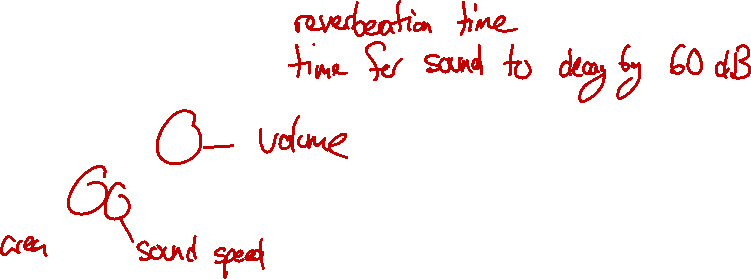 reverberation time
time for sound to decay by 60 dB
volume
area sound speed